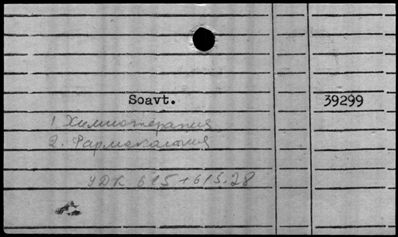 Soavt. 39299
1. Химиотерапия
2. Фармакология
УДК 615+615.28